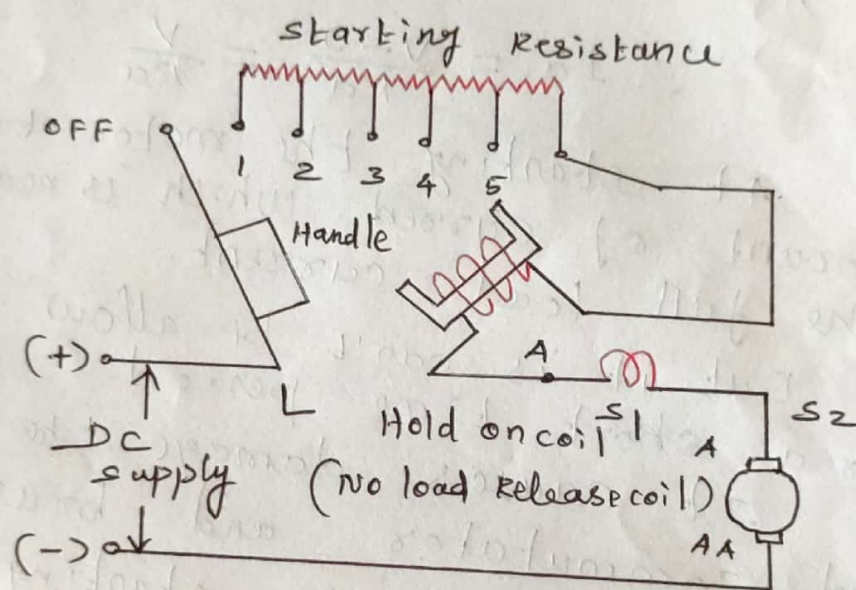 Starting Resistance
OFF
1 2 3 4 5
Handle
(+)
A
L
S1
S2
DC
supply
Hold on coil
(No load Release coil)
A
AA
(-)